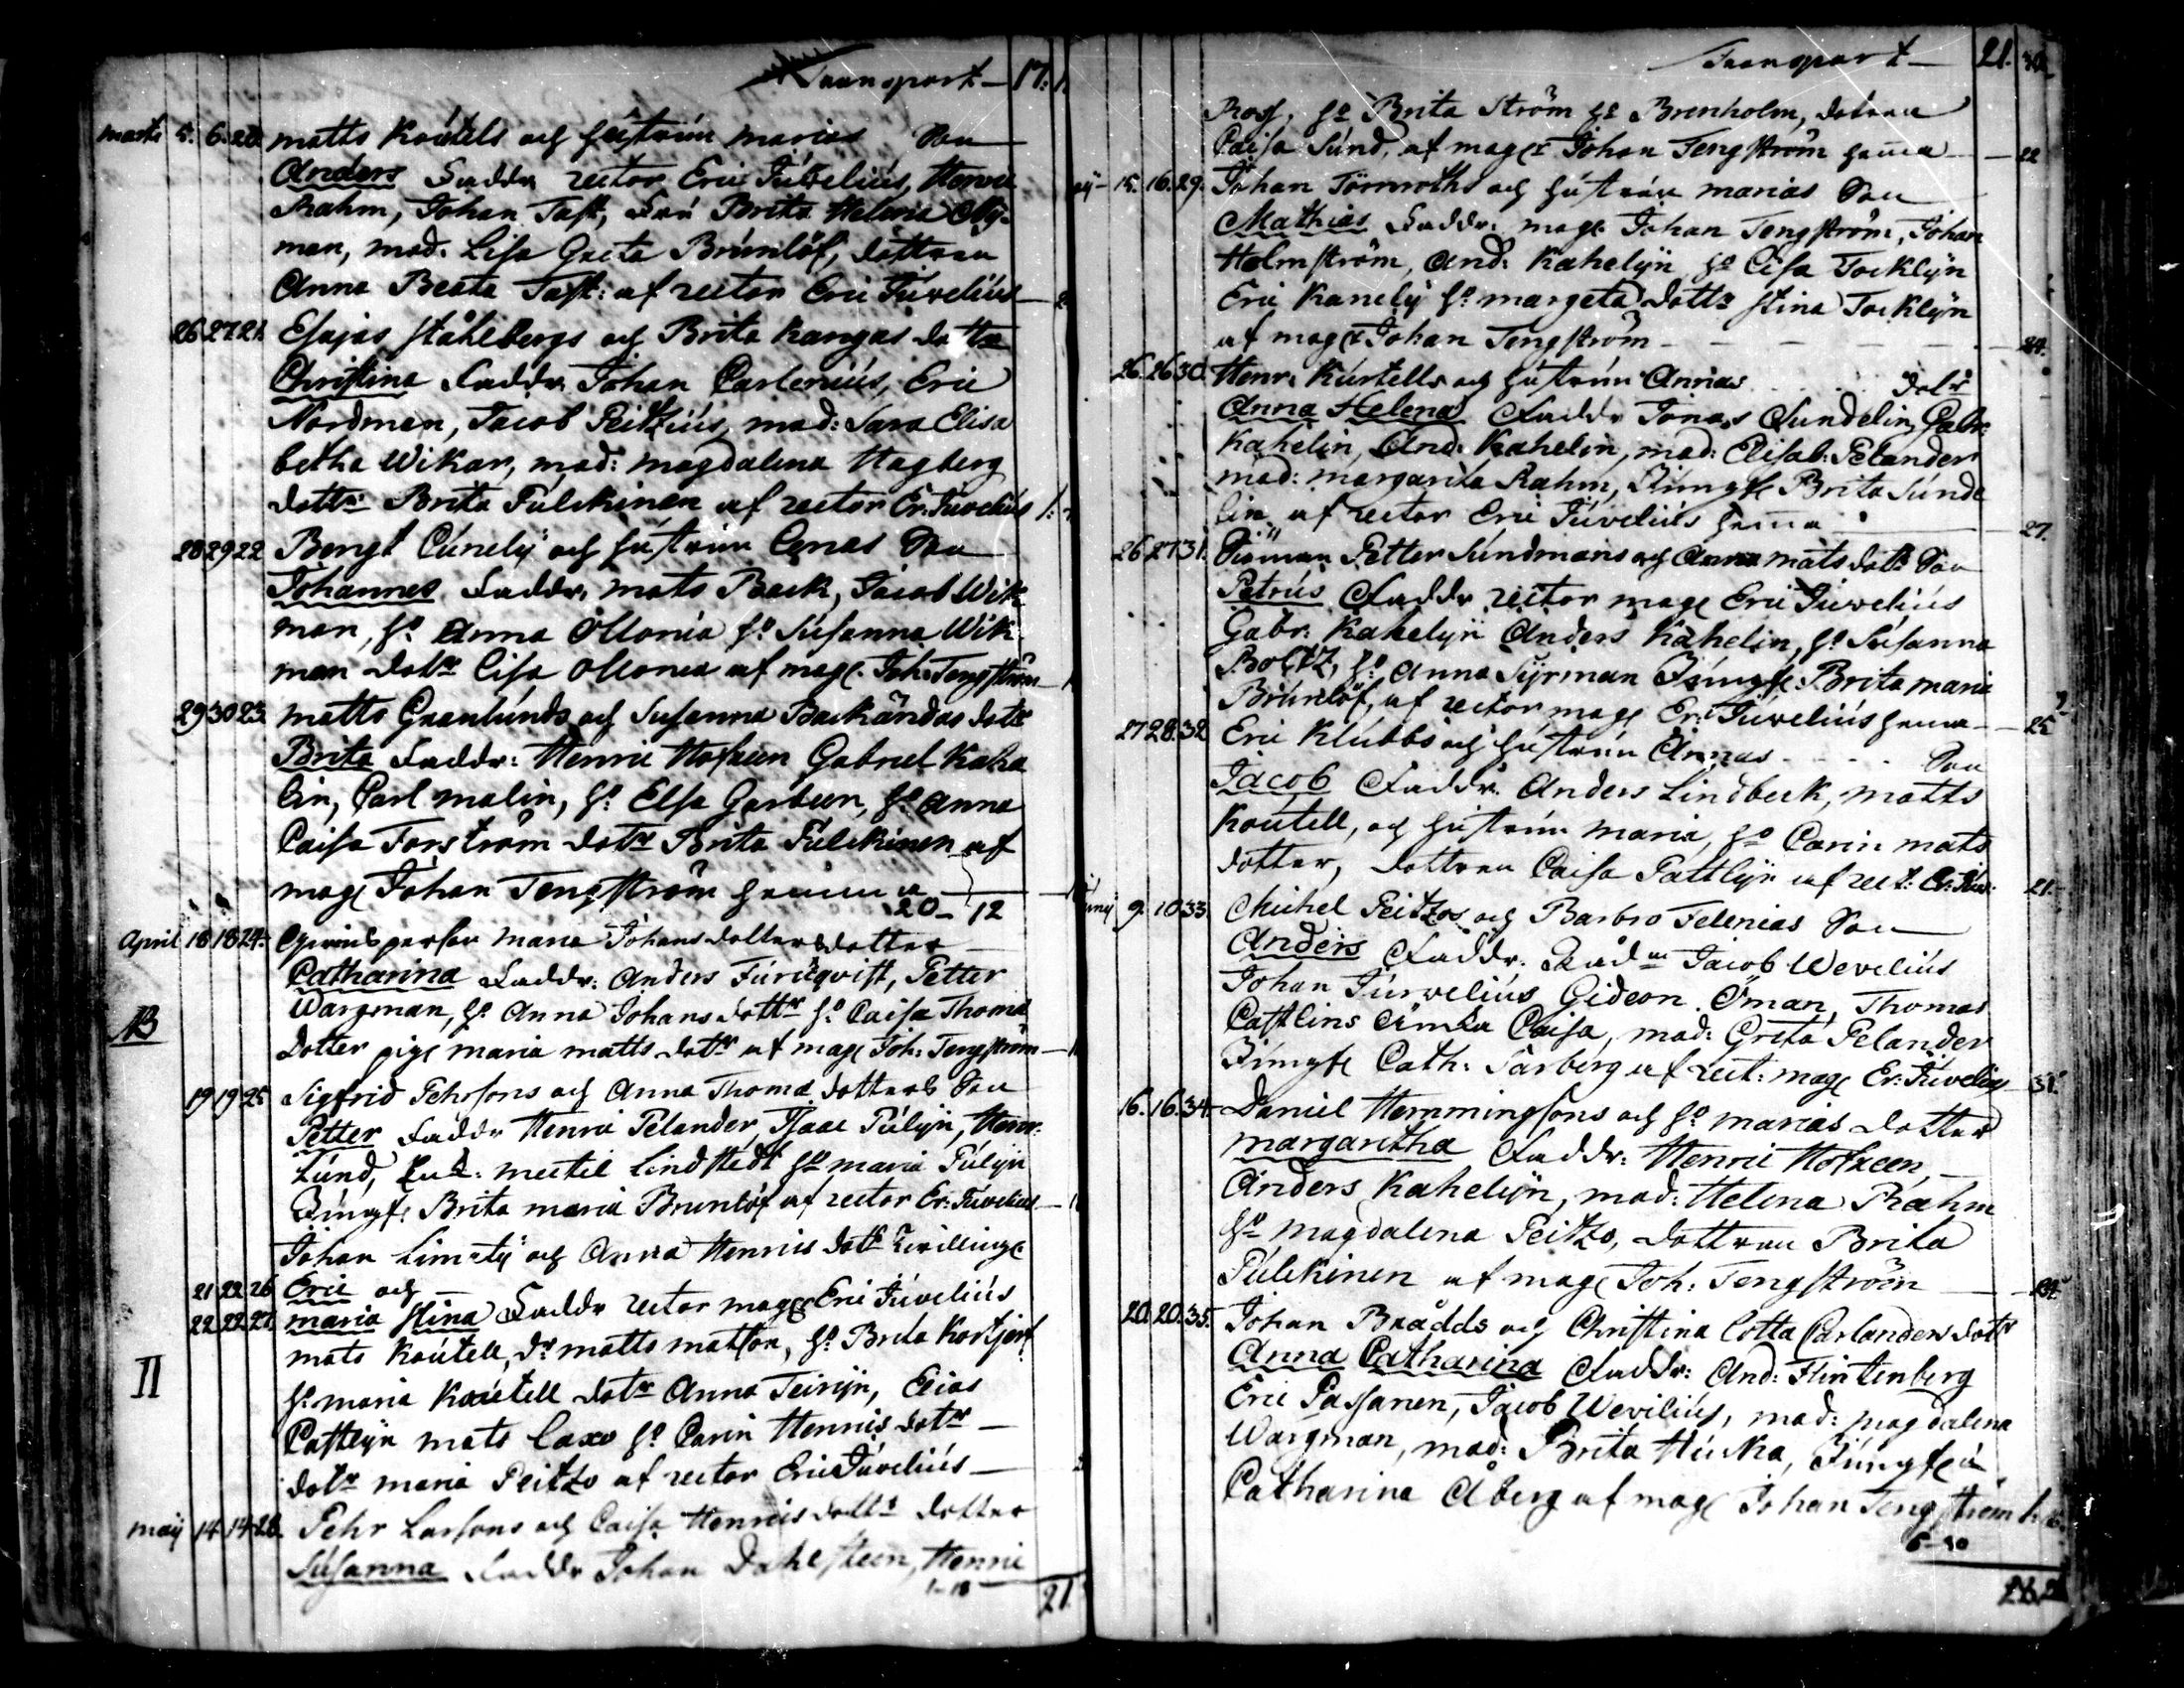 Transport — 17.
marts 5. 6. 20. matts Koutels och hustrun marias Son
Anders Faddr rector Eric Juvelius, Henric
Rahm, Johan Tast, Fru Brita Helena Ny-
man, mad. Lisa Greta Brunlöf, dottren
Anna Beata Tast: af rector Eric Juvelius —
26 27 21. Esajas Ståhlbergs och Brita Kangas dottr
Christina Faddr Johan Carlenius, Eric
Nordman, Jacob Peitzius, mad: Sara Elisa
betha Wikar, mad: magdalena Hagberg
dottr: Brita Pulckinen af rector Er: Juvelius
28 29 22 Bengt Cunelÿ och hustrun Lenas Son
Johannes Faddr, mats Back, Jacob Wik
man, ho Anna Ollonia ho Susanna Wik
man dotr Lisa Ollonia af mag. Joh: Tengström —
29 30 23. matts Granlunds och Susanna Backändas dotr
Brita Faddr: Henric Hofreen Gabriel Kahe
lin, Carl malin, ho Elsa Garbeen, ho Anna
Caisa Forström dotr Brita Pulckinen af
mag Johan Tengström hemma —
20 — 12
April 18 18 24. person maria Johansdotters dotter
Catharina Faddr: Anders Furuqvist, Petter
Wargman, ho Anna Johansdottr ho Caisa Thomæ
dotter pig maria matts dotr af mag Joh: Tengström —
B
19 19 25 Sigfrid Pehrsons och Anna Thomæ dotters Son
Petter Faddr Henric Pelander, Isaac Pulÿn, Henr:
Lund, mertil Lindstedt ho maria Pulÿn
Jungf: Brita maria Brunlöf af rector Er: Juvelius —
Johan Limatÿ och Anna Henrics dotr Tvillingr
21 22 26 Eric och
22 22 27. maria Stina Faddr rector mag Eric Juvelius
mats Koutell, dr matts matson, ho Brita Kortjerf
II
ho maria Koutell dotr Anna Teirijn, Elias
Castlÿn mats Laxo ho Carin Henrics dotr —
dotr maria Peitzo af rector Eric Juvelius —
maij 14. 14 28. Pehr Larsons och Caisa Henrics dottr dotter
Susanna Faddr Johan Dahlsteen, Henric
1—18
21
Transport — 21.
Ross, ho Brita Ström ho Brenholm, dotren
Caisa Sund, af magr Johan Tengström hema — 22
15. 16. 29. Johan Törnroths och hustrun marias Son
Mathias Faddr. mag. Johan Tengström, Johan
Holmström, And: Kahelijn ho Lisa Tocklijn
Eric Kanelÿ ho margeta dottr Stina Tocklÿn
af magr Johan Tengström — 24.
26. 26 30. Henr: Kurtells och hustrun Annas dotr
Anna Helena Faddr Jonas Sundelin, Gabr:
Kahelin, And: Kahelin, mad: Elisab: Pelander
mad: margarita Rahm, Jungfr Brita Sunde
lin af rector Eric Juvelius hema 27.
26. 27 31. Petter Sundmans och Anna matsdotr Son
Petrus Faddr rector mag Eric Juvelius
Gabr: Kahelÿn Anders Kahelin, ho Susanna
Boltz, ho Anna Syrman Jungfr: Brita maria
Brunlöf, af rector mag Er: Juvelius hema — 25
27 28. 32 Eric Klubbs och hustrun Annas Son
Jacob Faddr. Anders Lindbeck, matts
Koutell, och hustrun maria, ho Carin mats
dotter, dottren Caisa Pattlÿn af rect: Er: Juv: 21.
9. 10 33. Michel Peitzos och Barbro Telenias Son
Anders Faddr. Rådm Jacob Wevelius
Johan Jurvelius Gideon Öman, Thomas
Castlins änka Caisa, mad: Greta Pelander
Jungfr Cath: Färberg af rect: mag Er: Juvelius 31.
16. 16. 34. Daniel Hemmingsons och ho marias dotter
margaritha Faddr: Henric Hofreen,
Anders Kahelijn, mad: Helena Rahm
ho magdalena Peitzo, dottren Brita
Pulckinen af mag Joh: Tengström —
20. 20. 35. Johan Brådds och Christina Lotta Carlanders dotr
Anna Catharina Faddr: And: Flintenberg
Eric Passanen, Jacob Wevilius, mad: magdalena
Wargman, mad: Brita Hucka, Jungfru
Catharina Åberg af mag Johan Tengström